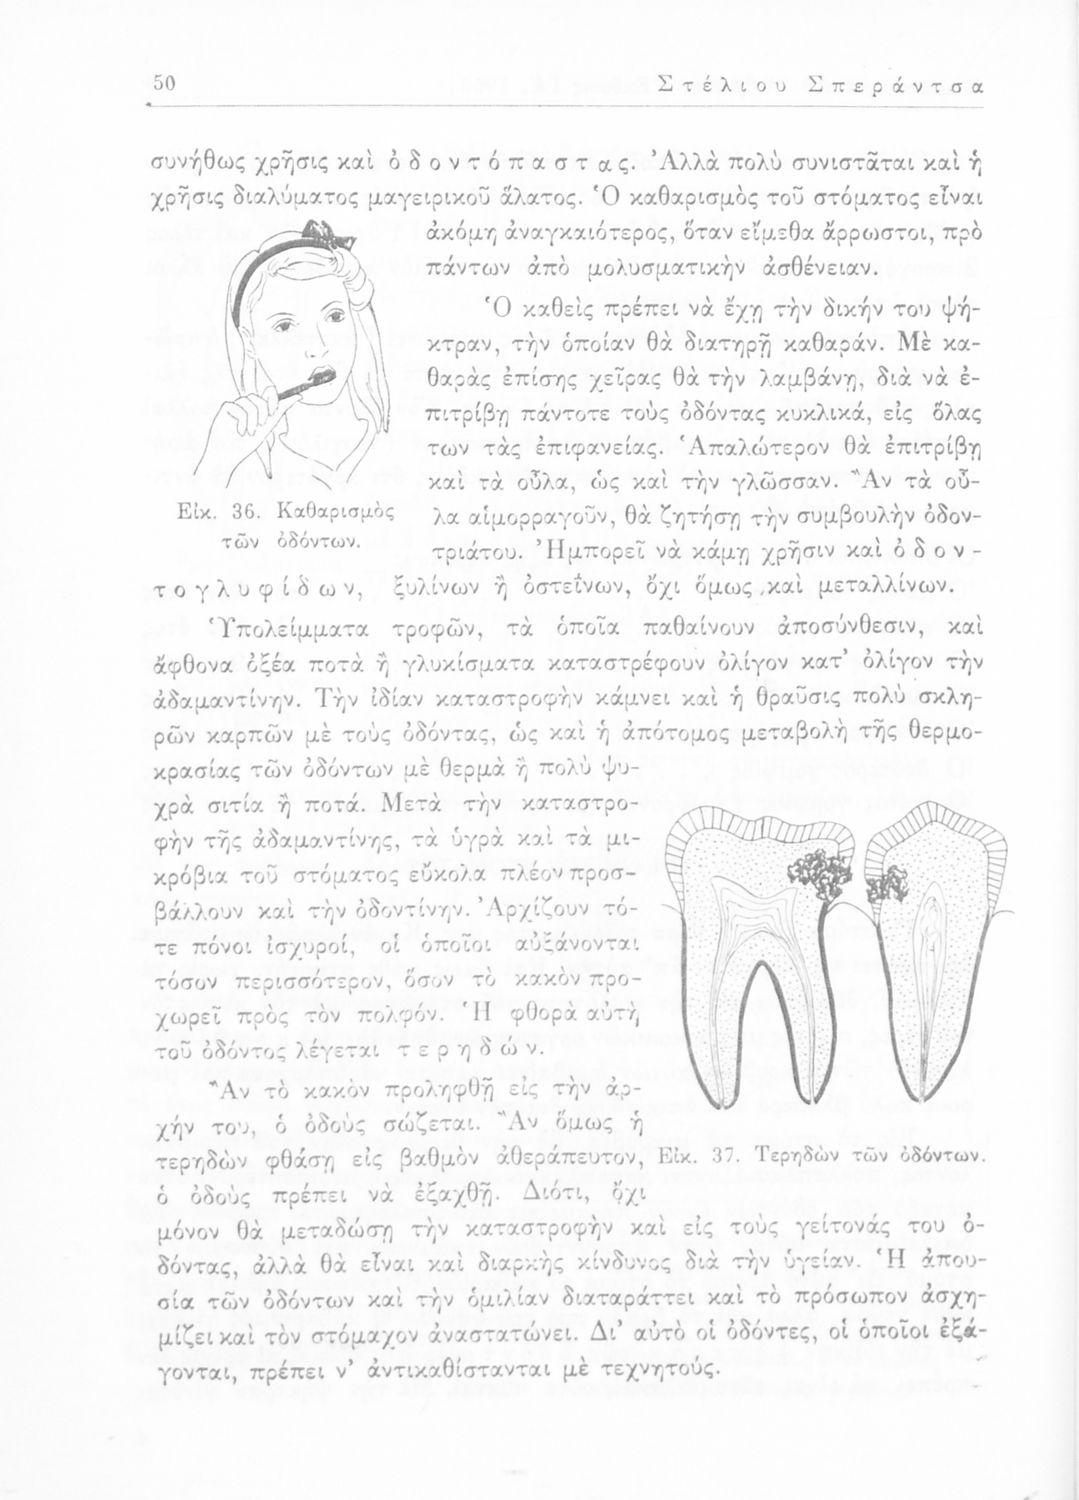 50
Στέλιου Σπεράντσα
συνήθως χρῆσις καὶ ὀδοντόπαστας. Ἀλλὰ πολὺ συνιστᾶται καὶ ἡ
χρῆσις διαλύματος μαγειρικοῦ ἅλατος. Ὁ καθαρισμὸς τοῦ στόματος εἶναι
ἀκόμη ἀναγκαιότερος, ὅταν εἴμεθα ἄρρωστοι, πρὸ
πάντων ἀπὸ μολυσματικὴν ἀσθένειαν.
Ὁ καθεὶς πρέπει νὰ ἔχῃ τὴν δικήν του ψή-
κτραν, τὴν ὁποίαν θὰ διατηρῇ καθαράν. Μὲ κα-
θαρὰς ἐπίσης χεῖρας θὰ τὴν λαμβάνῃ, διὰ νὰ ἐ-
πιτρίβῃ πάντοτε τοὺς ὀδόντας κυκλικά, εἰς ὅλας
των τὰς ἐπιφανείας. Ἁπαλώτερον θὰ ἐπιτρίβῃ
καὶ τὰ οὖλα, ὡς καὶ τὴν γλῶσσαν. Ἂν τὰ οὖ-
λα αἱμορραγοῦν, θὰ ζητήσῃ τὴν συμβουλὴν ὀδον-
τριάτου. Ἠμπορεῖ νὰ κάμῃ χρῆσιν καὶ ὀδον-
τογλυφίδων, ξυλίνων ἢ ὀστεΐνων, ὄχι ὅμως καὶ μεταλλίνων.
Εἰκ. 36. Καθαρισμὸς
τῶν ὀδόντων.
Ὑπολείμματα τροφῶν, τὰ ὁποῖα παθαίνουν ἀποσύνθεσιν, καὶ
ἄφθονα ὀξέα ποτὰ ἢ γλυκίσματα καταστρέφουν ὀλίγον κατ' ὀλίγον τὴν
ἀδαμαντίνην. Τὴν ἰδίαν καταστροφὴν κάμνει καὶ ἡ θραῦσις πολὺ σκλη-
ρῶν καρπῶν μὲ τοὺς ὀδόντας, ὡς καὶ ἡ ἀπότομος μεταβολὴ τῆς θερμο-
κρασίας τῶν ὀδόντων μὲ θερμὰ ἢ πολὺ ψυ-
χρὰ σιτία ἢ ποτά. Μετὰ τὴν καταστρο-
φὴν τῆς ἀδαμαντίνης, τὰ ὑγρὰ καὶ τὰ μι-
κρόβια τοῦ στόματος εὔκολα πλέον προσ-
βάλλουν καὶ τὴν ὀδοντίνην. Ἀρχίζουν τό-
τε πόνοι ἰσχυροί, οἱ ὁποῖοι αὐξάνονται
τόσον περισσότερον, ὅσον τὸ κακὸν προ-
χωρεῖ πρὸς τὸν πολφόν. Ἡ φθορὰ αὐτὴ
τοῦ ὀδόντος λέγεται τερηδών.
Ἂν τὸ κακὸν προληφθῇ εἰς τὴν ἀρ-
χήν του, ὁ ὀδοὺς σώζεται. Ἂν ὅμως ἡ
τερηδὼν φθάσῃ εἰς βαθμὸν ἀθεράπευτον,
ὁ ὀδοὺς πρέπει νὰ ἐξαχθῇ. Διότι, ὄχι
Εἰκ. 37. Τερηδὼν τῶν ὀδόντων.
μόνον θὰ μεταδώσῃ τὴν καταστροφὴν καὶ εἰς τοὺς γείτονάς του ὀ-
δόντας, ἀλλὰ θὰ εἶναι καὶ διαρκὴς κίνδυνος διὰ τὴν ὑγείαν. Ἡ ἀπου-
σία τῶν ὀδόντων καὶ τὴν ὁμιλίαν διαταράττει καὶ τὸ πρόσωπον ἀσχη-
μίζει καὶ τὸν στόμαχον ἀναστατώνει. Δι' αὐτὸ οἱ ὀδόντες, οἱ ὁποῖοι ἐξά-
γονται, πρέπει ν' ἀντικαθίστανται μὲ τεχνητούς.